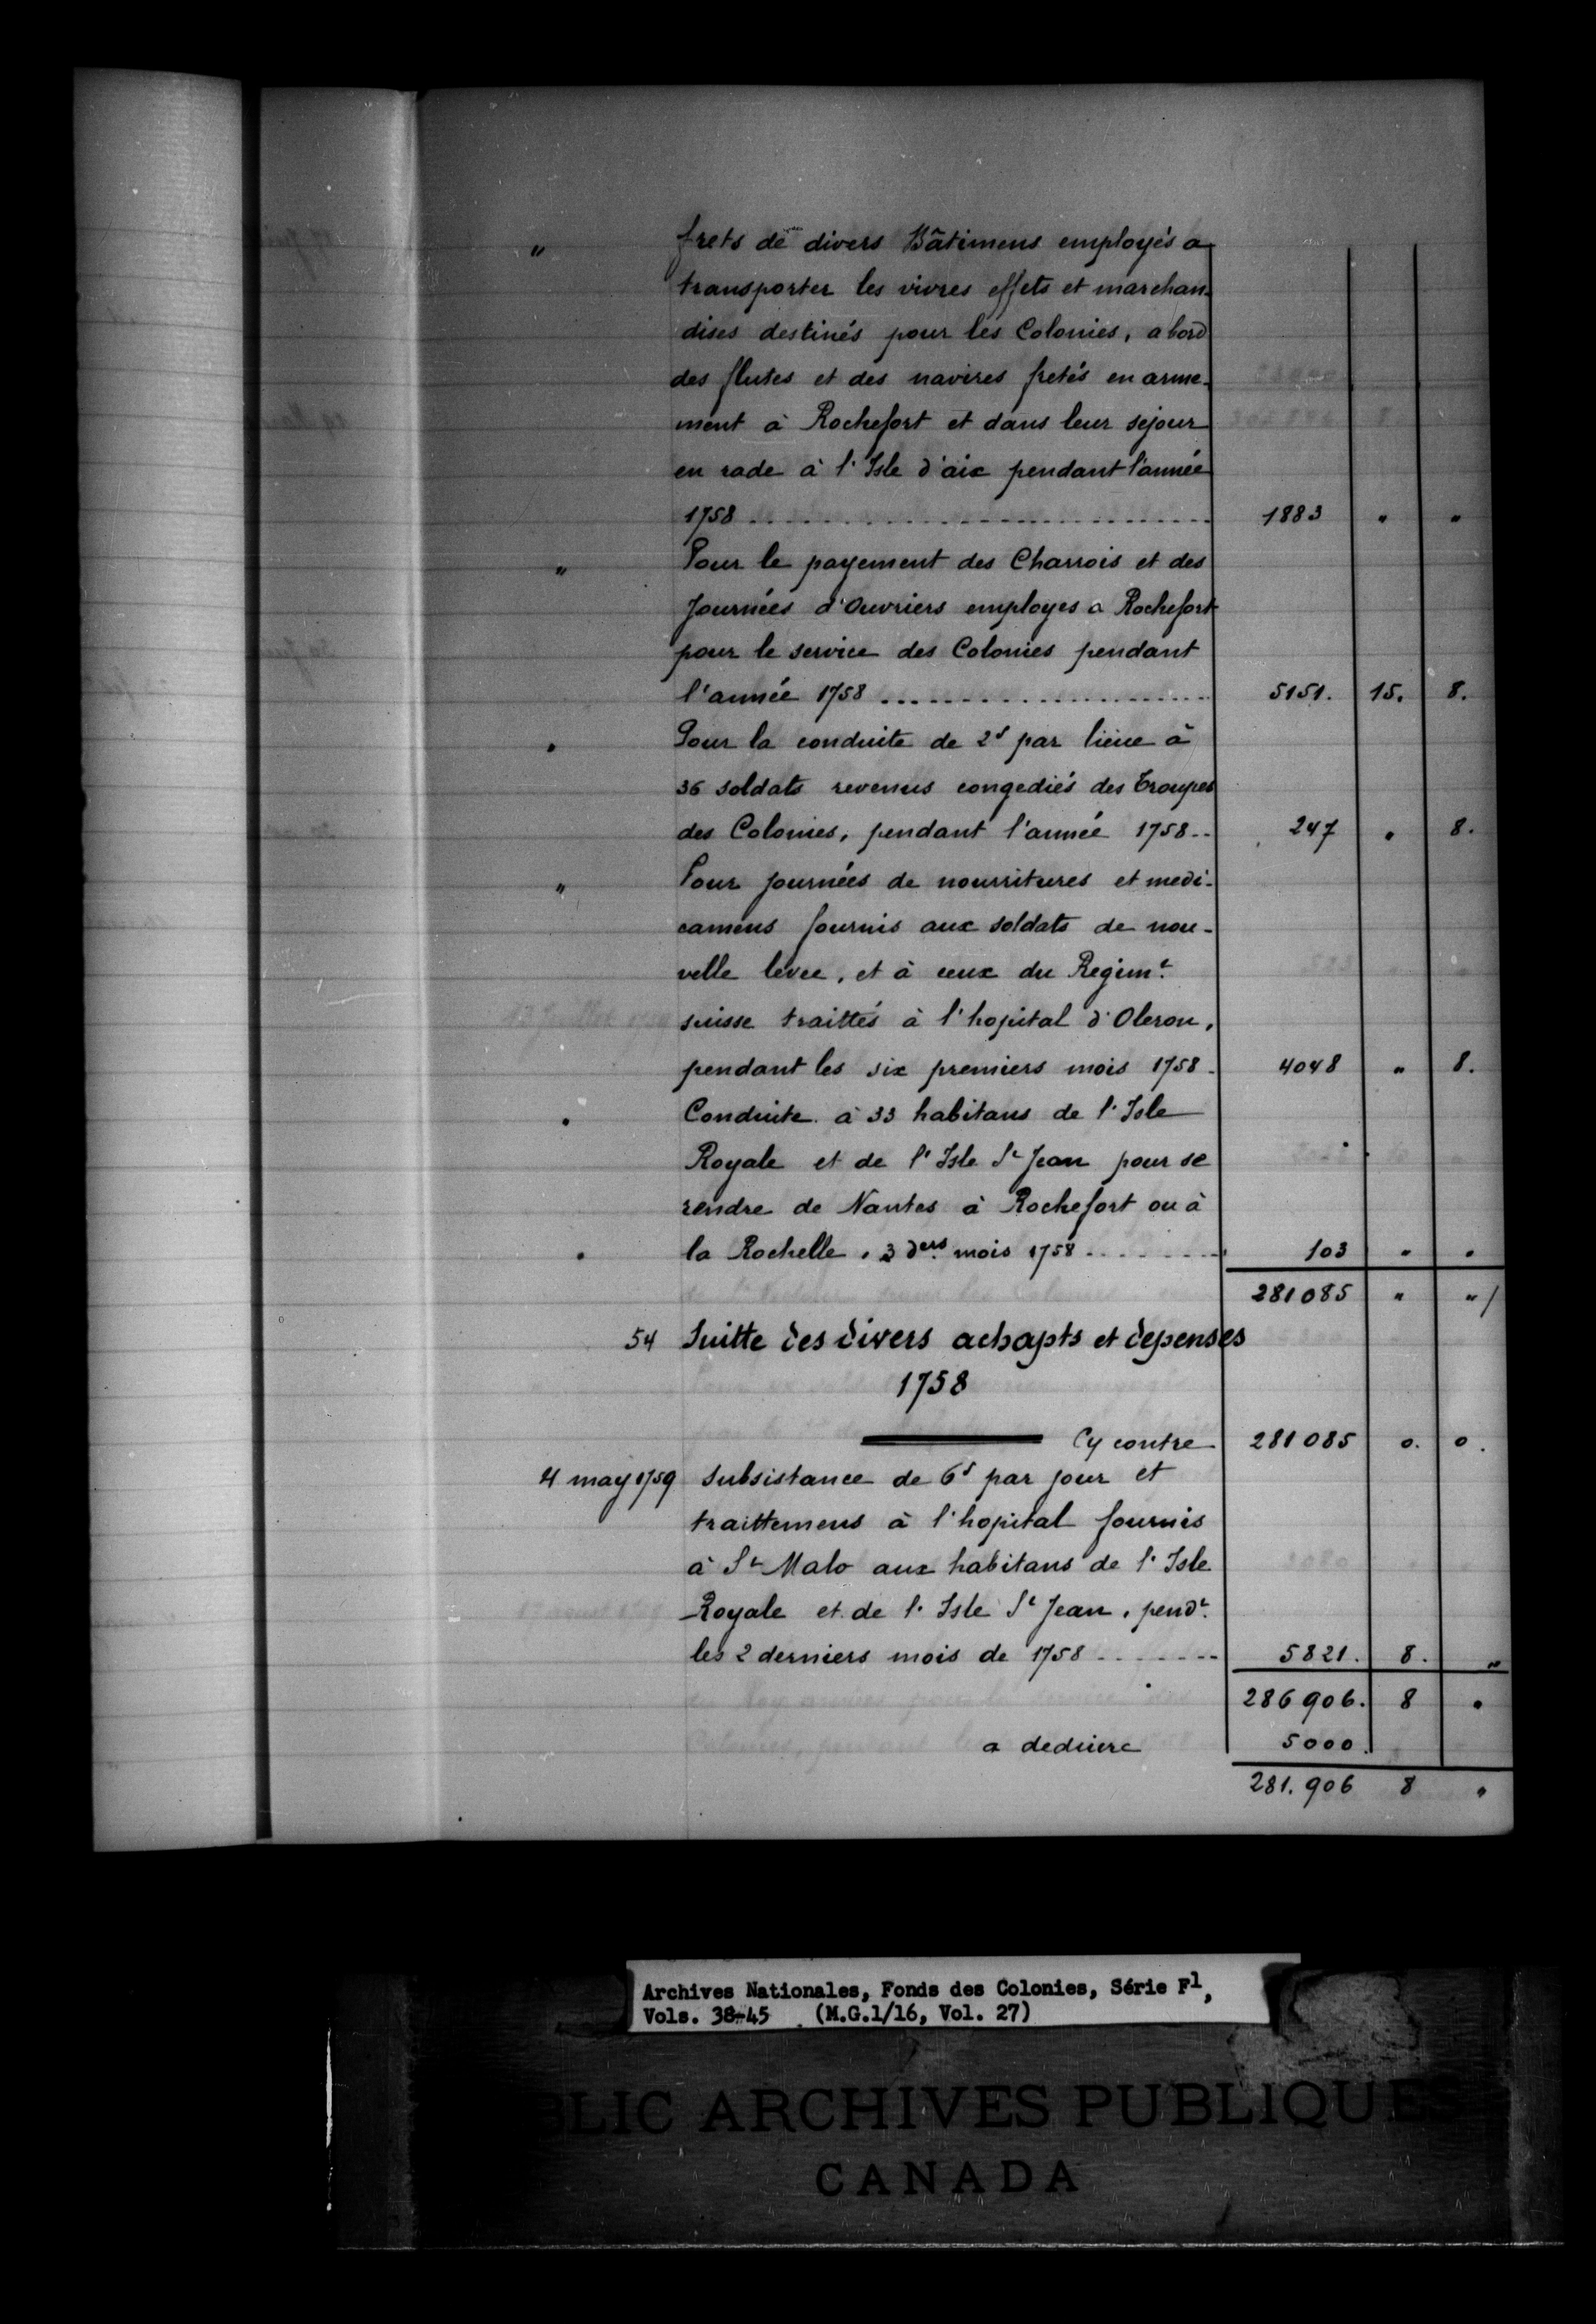 " frets de divers Bâtimens employés a
transporter les vivres effets et marchan-
dises destinés pour les Colonies, abord
des flutes et des navires fretés en arme-
ment à Rochefort et dans leur sejour
en rade à l'Isle d'aix pendant l'année
1758 ........................ 1883 " "
" Pour le payement des Charrois et des
Journées d'Ouvriers employes a Rochefort
pour le service des Colonies pendant
l'année 1758 ................ 5151. 15. 8.
" Pour la conduite de 2s par lieue à
36 soldats revenus congediés des Troupes
des Colonies, pendant l'année 1758 .. 247 " 8.
" Pour journées de nourritures et medi-
camens fournis aux soldats de nou-
velle levee, et à ceux du Regimt.
suisse traittés à l'hopital d'Oleron,
pendant les six premiers mois 1758 - 4048 " 8.
" Conduite à 33 habitans de l'Isle
Royale et de l'Isle St Jean pour se
rendre de Nantes à Rochefort ou à
" la Rochelle, 3 ders. mois 1758 ........ 103 " "
281085 " "/
54 Suitte des divers achapts et depenses
1758
Cy contre 281085 0. 0.
4 may 1759 subsistance de 6s par jour et
traittemens à l'hopital fournis
à St Malo aux habitans de l'Isle
Royale et de l'Isle St Jean, pendt.
les 2 derniers mois de 1758 ....... 5821. 8. "
286906. 8 "
a deduire 5000.
281.906 8 "
Archives Nationales, Fonds des Colonies, Série F1,
Vols. 38-45 (M.G.1/16, Vol. 27)
BLIC ARCHIVES PUBLIQUES
CANADA